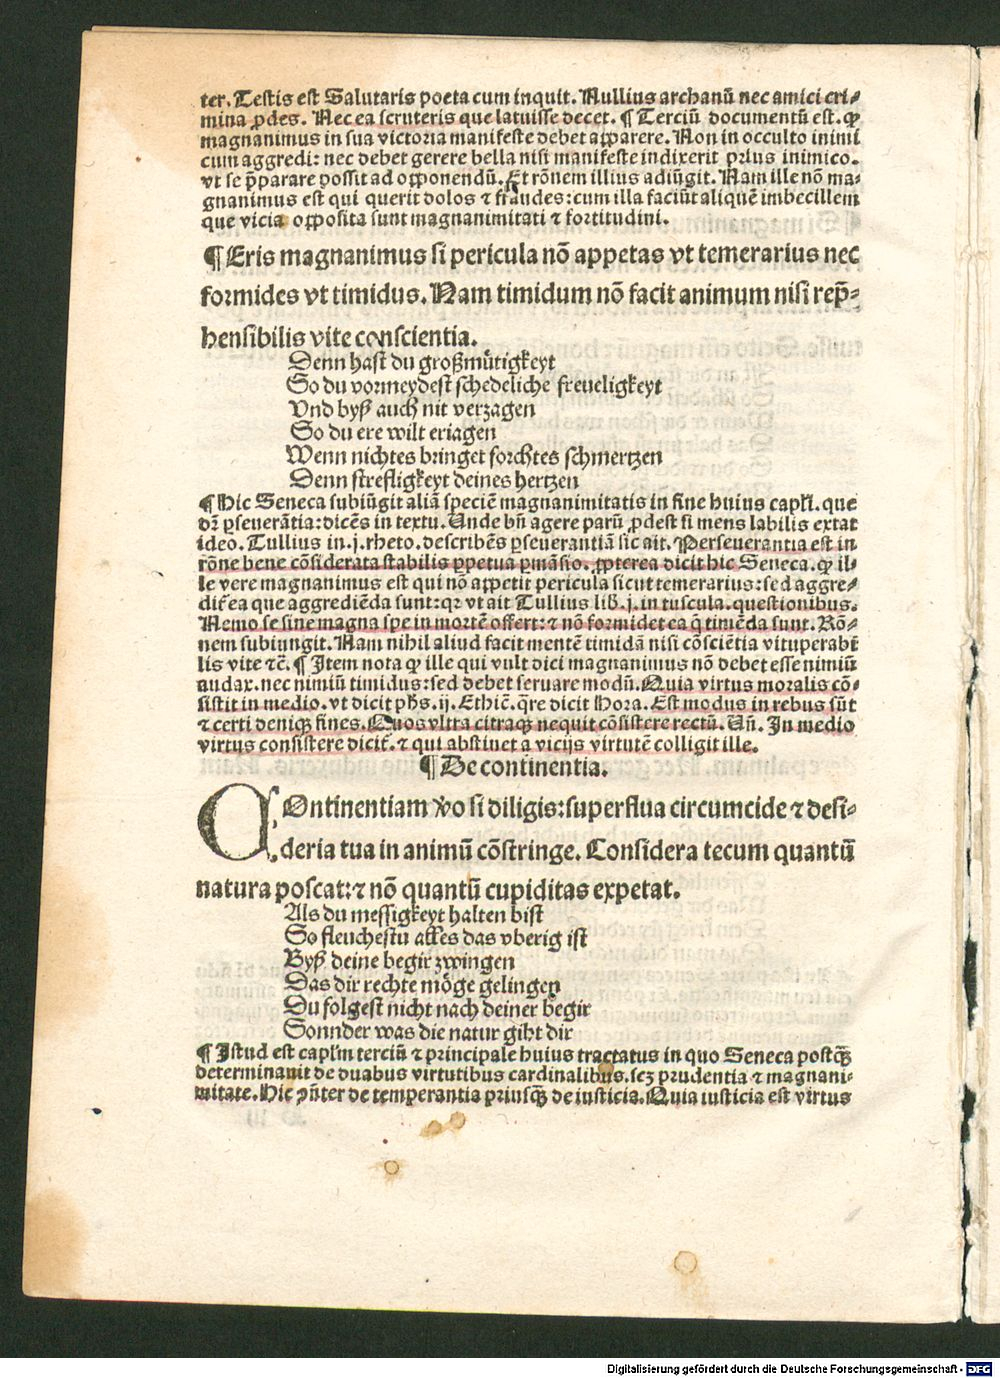 ter. Testis est Salutaris poeta cum inquit. Nullius archanū nec amici cri-
mina ꝓdes. Nec ea scruteris que latuisse decet. ¶ Terciū documentū est. ꝙ
magnanimus in sua victoria manifeste debet apparere. Non in occulto inimi
cum aggredi: nec debet gerere bella nisi manifeste indixerit prius inimico.
vt se p̄parare possit ad opponendū. Et rōnem illius adiūgit. Nam ille nō ma-
gnanimus est qui querit dolos ⁊ fraudes: cum illa faciūt aliquē imbecillem
que vicia opposita sunt magnanimitati ⁊ fortitudini.
¶ Eris magnanimus si pericula nō appetas vt temerarius nec
formides vt timidus. Nam timidum nō facit animum nisi rep̄-
hensibilis vite conscientia.
Denn hast du großmütigkeyt
So du vormeydest schedeliche freueligkeyt
Vnd byß auch nit verzagen
So du ere wilt eriagen
Wenn nichtes bringet forchtes schmertzen
Denn strefligkeyt deines hertzen
¶ Hic Seneca subiūgit aliā speciē magnanimitatis in fine huius capłi. que
dr̄ ꝑseuerātia: dicēs in textu. Unde bn̄ agere parū ꝓdest si mens labilis extat
ideo. Tullius in .j. rheto. describēs ꝑseuerantiā sic ait. Perseuerantia est in
rōne bene cōsiderata stabilis ꝑpetua ꝑmāsio. ꝓpterea dicit hic Seneca. ꝙ il-
le vere magnanimus est qui nō appetit pericula sicut temerarius: sed aggre-
dit̄ ea que aggrediēda sunt: qꝛ vt ait Tullius lib̄. j. in tuscula. questionibus.
Nemo se sine magna spe in mortē offert: ⁊ nō formidet ea q̄ timēda sunt. Rō-
nem subiungit. Nam nihil aliud facit mentē timidā nisi cōsciētia vituperabi
lis vite ⁊c̄. ¶ Item nota ꝙ ille qui vult dici magnanimus nō debet esse nimiū
audax. nec nimiū timidus: sed debet seruare modū. Quia virtus moralis cō-
sistit in medio. vt dicit ph̄s. ij. Ethic̄. q̄re dicit Hora. Est modus in rebus sūt
⁊ certi deniqꝫ fines. Quos vltra citraqꝫ nequit cōsistere rectū. Un̄. In medio
virtus consistere dicit̄. ⁊ qui abstinet a vicijs virtutē colligit ille.
¶ De continentia.
COntinentiam ꝟo si diligis: superflua circumcide ⁊ desi-
deria tua in animū cōstringe. Considera tecum quantū
natura poscat: ⁊ nō quantū cupiditas expetat.
Als du messigkeyt halten bist
So fleuchestu alles das vberig ist
Byß deine begir zwingen
Das dir rechte möge gelingen
Du folgest nicht nach deiner begir
Sonnder was die natur gibt dir
¶ Istud est capłm terciū ⁊ principale huius tractatus in quo Seneca postq̄ꝫ
determinauit de duabus virtutibus cardinalibus. scꝫ prudentia ⁊ magnani-
mitate. Hic ꝯn̄ter de temperantia priusq̄ꝫ de iusticia. Quia iusticia est virtus
Digitalisierung gefördert durch die Deutsche Forschungsgemeinschaft - DFG